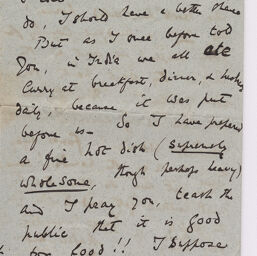 do, I should have a better chance
But as I once before told
you, in India we all ate
Curry at breakfast, dinner, &
daily, because it was put
before us — So I have prepared
a fine hot dish (supremely
wholesome, though perhaps heavy)
and I pray you, teach the
public that it is good
food!! I suppose